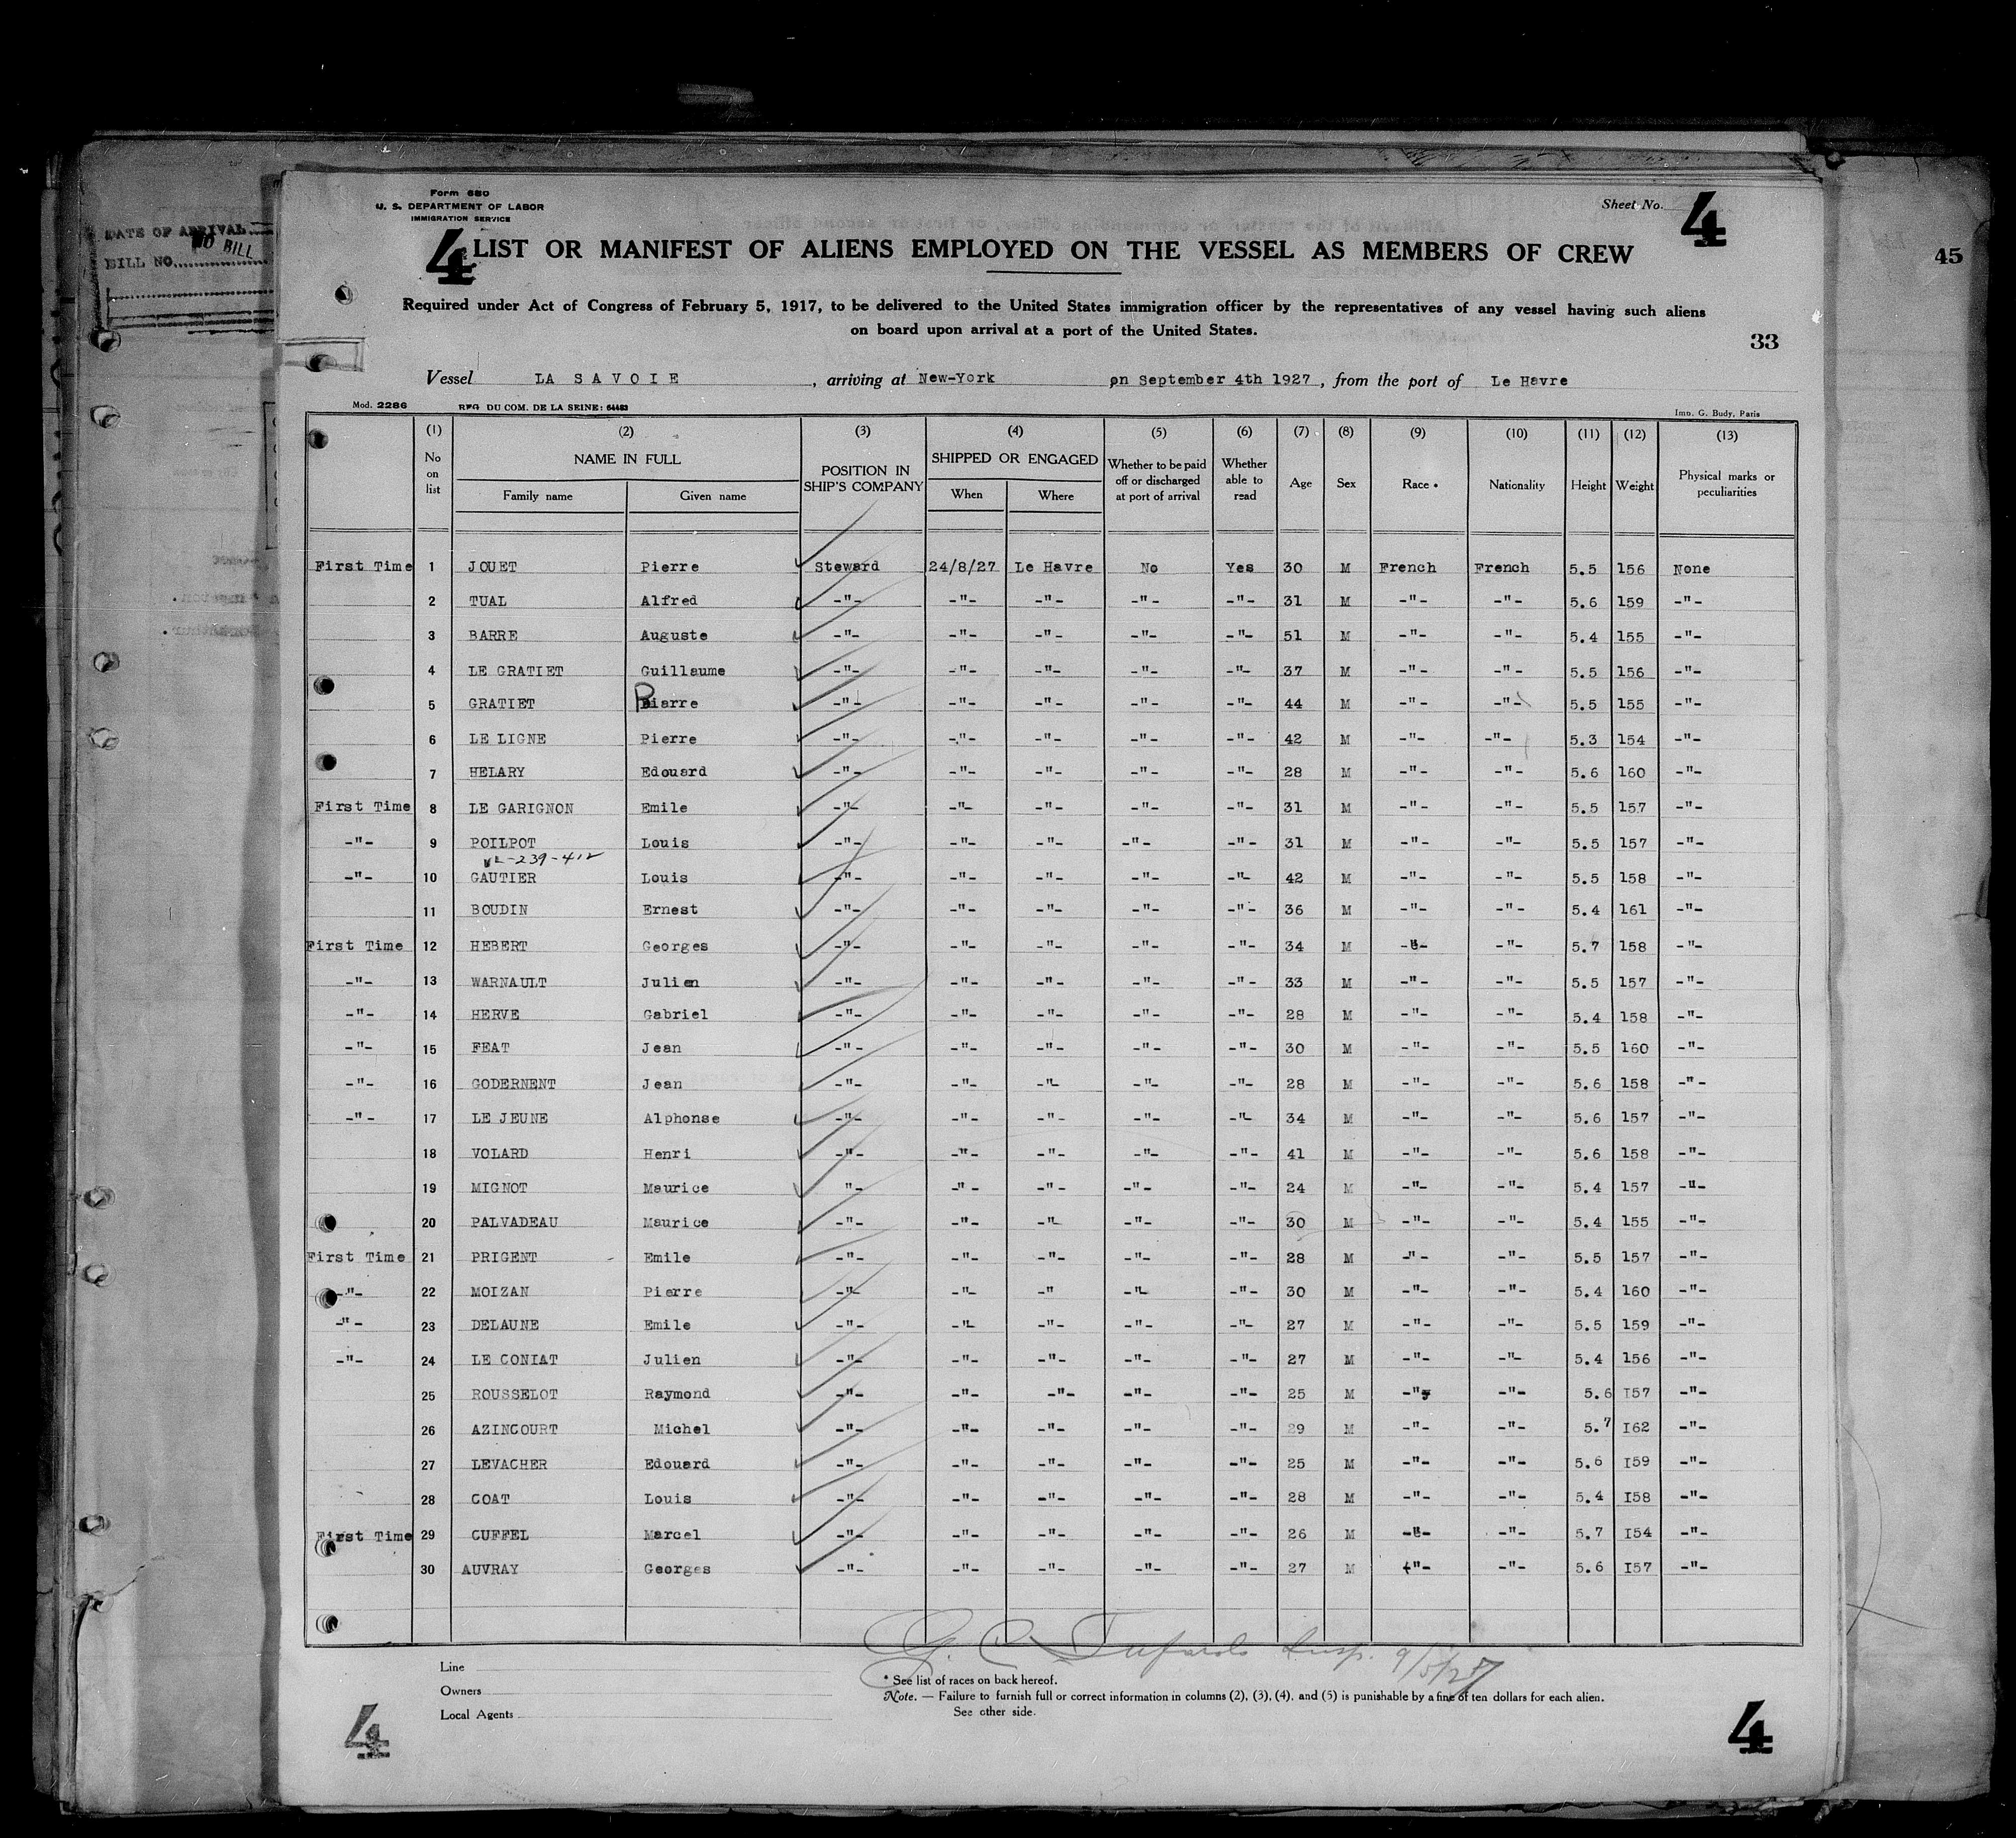 DATE OF ARRIVAL
NO BILL
BILL NO.
Form 680
U. S. DEPARTMENT OF LABOR
IMMIGRATION SERVICE
Sheet No. 4
4
LIST OR MANIFEST OF ALIENS EMPLOYED ON THE VESSEL AS MEMBERS OF CREW
45
Required under Act of Congress of February 5, 1917, to be delivered to the United States immigration officer by the representatives of any vessel having such aliens
on board upon arrival at a port of the United States.
33
Vessel LA SAVOIE, arriving at New-York on September 4th 1927, from the port of Le Havre
Mod. 2286 REG. DU COM. DE LA SEINE: 64483 Imp. G. Budy, Paris
(1) (2) (3) (4) (5) (6) (7) (8) (9) (10) (11) (12) (13)
No on list NAME IN FULL Family name Given name POSITION IN SHIP'S COMPANY SHIPPED OR ENGAGED When Where Whether to be paid off or discharged at port of arrival Whether able to read Age Sex Race * Nationality Height Weight Physical marks or peculiarities
First Time 1 JOUET Pierre Steward 24/8/27 Le Havre No Yes 30 M French French 5.5 156 None
2 TUAL Alfred -"- -"- -"- -"- -"- 31 M -"- -"- 5.6 159 -"-
3 BARRE Auguste -"- -"- -"- -"- -"- 51 M -"- -"- 5.4 155 -"-
4 LE GRATIET Guillaume -"- -"- -"- -"- -"- 37 M -"- -"- 5.5 156 -"-
5 GRATIET Pierre -"- -"- -"- -"- -"- 44 M -"- -"- 5.5 155 -"-
6 LE LIGNE Pierre -"- -"- -"- -"- -"- 42 M -"- -"- 5.3 154 -"-
7 HELARY Edouard -"- -"- -"- -"- -"- 28 M -"- -"- 5.6 160 -"-
First Time 8 LE GARIGNON Emile -"- -"- -"- -"- -"- 31 M -"- -"- 5.5 157 -"-
-"- 9 POILPOT Louis -"- -"- -"- -"- -"- 31 M -"- -"- 5.5 157 -"-
-239-412
-"- 10 GAUTIER Louis -"- -"- -"- -"- -"- 42 M -"- -"- 5.5 158 -"-
11 BOUDIN Ernest -"- -"- -"- -"- -"- 36 M -"- -"- 5.4 161 -"-
First Time 12 HEBERT Georges -"- -"- -"- -"- -"- 34 M -"- -"- 5.7 158 -"-
-"- 13 WARNAULT Julien -"- -"- -"- -"- -"- 33 M -"- -"- 5.5 157 -"-
-"- 14 HERVE Gabriel -"- -"- -"- -"- -"- 28 M -"- -"- 5.4 158 -"-
-"- 15 FEAT Jean -"- -"- -"- -"- -"- 30 M -"- -"- 5.5 160 -"-
-"- 16 GODERNENT Jean -"- -"- -"- -"- -"- 28 M -"- -"- 5.6 158 -"-
-"- 17 LE JEUNE Alphonse -"- -"- -"- -"- -"- 34 M -"- -"- 5.6 157 -"-
18 VOLARD Henri -"- -"- -"- -"- -"- 41 M -"- -"- 5.6 158 -"-
19 MIGNOT Maurice "- -"- -"- -"- -"- 24 M -"- -"- 5.4 157 -"-
20 PALVADEAU Maurice -"- -"- -"- -"- -"- 30 M -"- -"- 5.4 155 -"-
First Time 21 PRIGENT Emile -"- -"- -"- -"- -"- 28 M -"- -"- 5.5 157 -"-
-"- 22 MOIZAN Pierre -"- -"- -" -"- -"- 30 M -"- -"- 5.4 160 -"-
-"- 23 DELAUNE Emile -"- -"- -"- -"- -"- 27 M -"- -"- 5.5 159 -"-
-"- 24 LE CONIAT Julien -"- -"- -"- -"- -"- 27 M -"- -"- 5.4 156 -"-
25 ROUSSELOT Raymond -"- -"- -"- -"- -"- 25 M -"- -"- 5.6 I57 -"-
26 AZINCOURT Michel -"- -"- -"- -"- -"- 29 M -"- -"- 5.7 I62 -"-
27 LEVACHER Edouard -"- -"- -"- -"- -"- 25 M -"- -"- 5.6 I59 -"-
28 COAT Louis -"- -"- -"- -"- -"- 28 M -"- -"- 5.4 I58 -"-
First Time 29 CUFFEL Marcel -"- -"- -"- -"- -"- 26 M -"- -"- 5.7 I54 -"-
30 AUVRAY Georges -"- -"- -"- -"- -"- 27 M -"- -"- 5.6 I57 -"-
G. C. Insp. 9/5/27
Line
Owners
Local Agents
* See list of races on back hereof.
Note. — Failure to furnish full or correct information in columns (2), (3), (4), and (5) is punishable by a fine of ten dollars for each alien.
See other side.
4
4